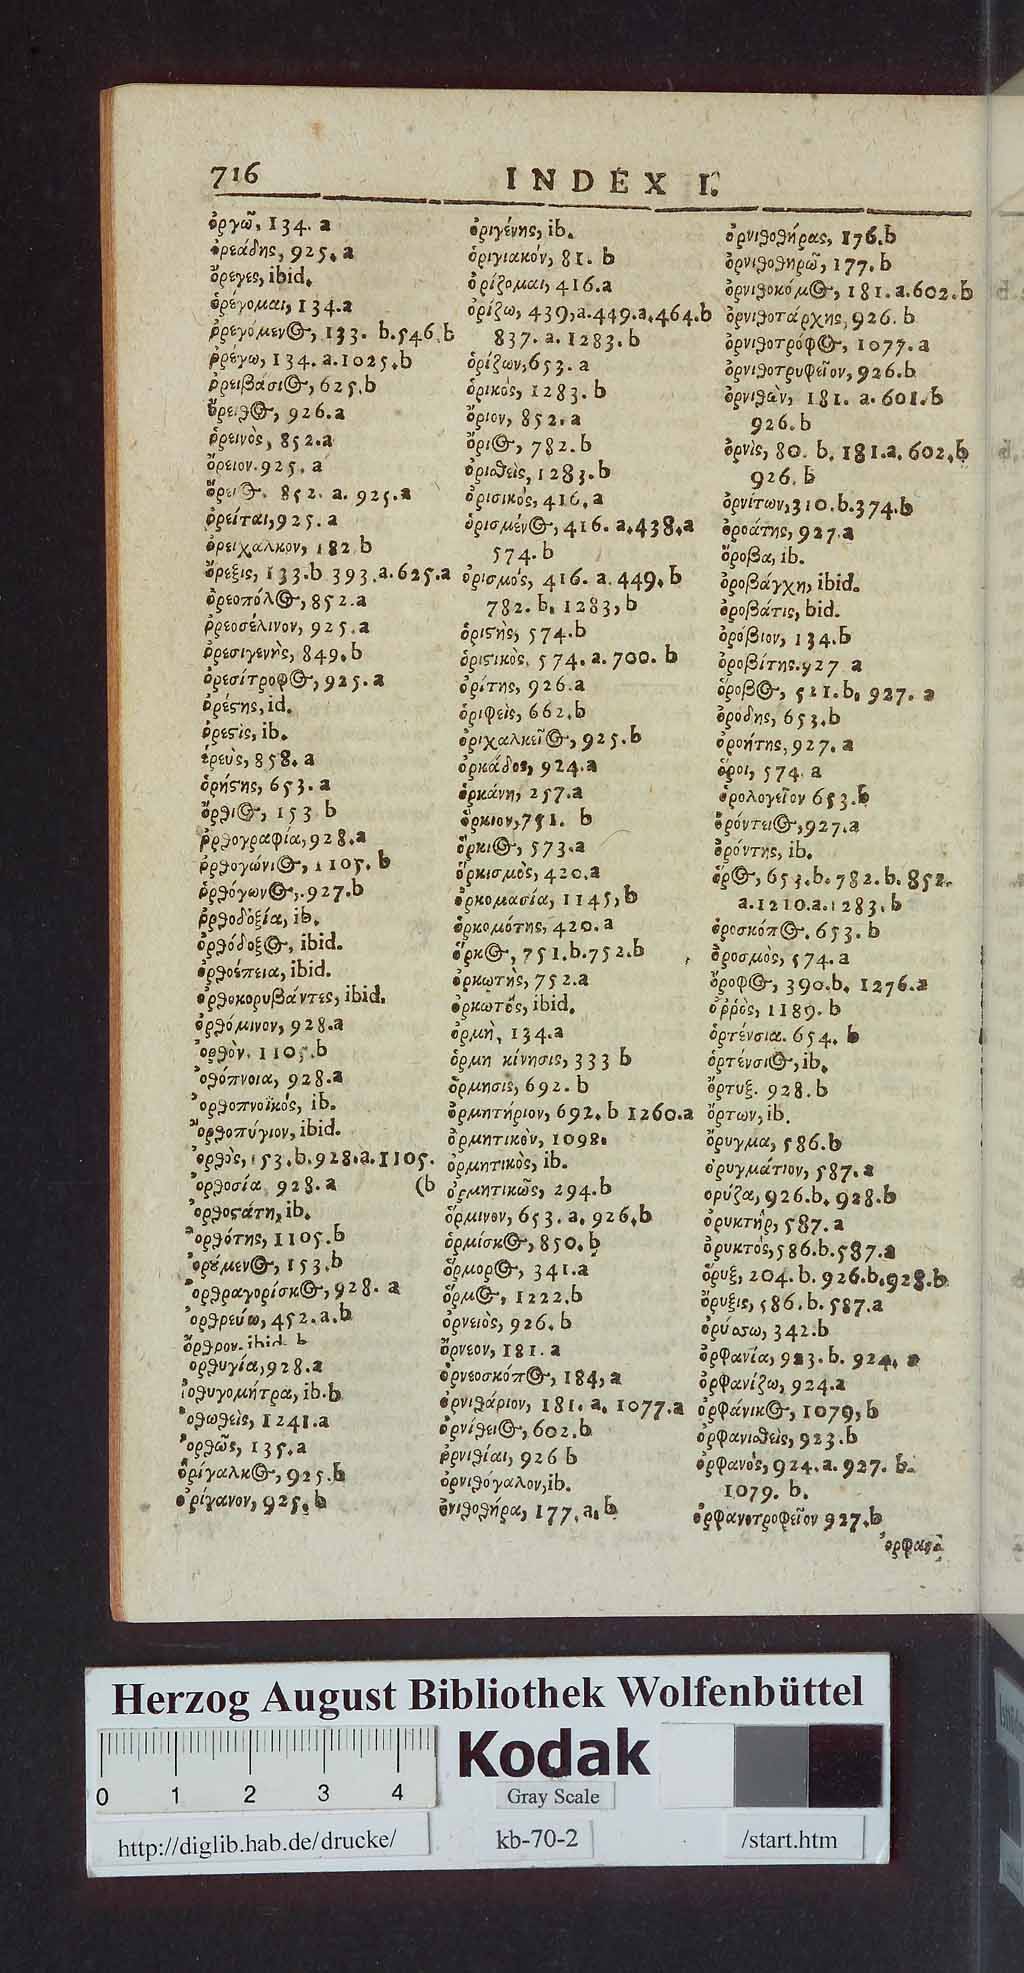 716 INDEX I.
ὀργῶ, 134. a
ὀρεάδης, 925. a
ὄρεγες, ibid.
ὀρέγομαι, 134.a
ὀρεγόμενος, 133. b. 546. b
ὀρέγω, 134. a. 1025. b
ὀρειβάσιος, 625. b
ὄρειθος, 926.a
ὀρεινὸς, 852.a
ὄρειον. 925. a
ὄρειος. 852. a. 925. a
ὀρείται, 925. a
ὀρειχαλκον, 182 b
ὄρεξις, 133.b 393. a. 625. a
ὀρεοπόλος, 852.a
ὀρεοσέλινον, 925. a
ὀρεσιγενὴς, 849. b
ὀρεσίτροφος, 925. a
ὀρέστης, id.
ὀρεστὶς, ib.
ὀρεὺς, 858. a
ὁρήστης, 653. a
ὄρθιος, 153 b
ὀρθογραφία, 928. a
ὀρθογώνιος, 1105. b
ὀρθόγωνος, .927.b
ὀρθοδοξία, ib.
ὀρθόδοξος, ibid.
ὀρθοέπεια, ibid.
ὀρθοκορυβάντες, ibid.
ὀρθόμινον, 928.a
ὀρθὸν. 1105. b
ὀθόπνοια, 928.a
ὀρθοπνοϊκός, ib.
ὀρθοπύγιον, ibid.
ὀρθὸς, 153. b. 928. a. 1105.
ὀρθοσία 928. a (b
ὀρθοστάτη, ib.
ὀρθότης, 1105. b
ὀρούμενος, 153. b
ὀρθραγορίσκος, 928. a
ὀρθρεύω, 452. a. b
ὄρθρον. ibid. b
ὀρθυγία, 928. a
ὀθυγομήτρα, ib. b
ὀθωθεὶς, 1241. a
ὀρθῶς, 135. a
ὀρίγαλκος, 925. b
ὀρίγανον, 925. b
ὀριγένης, ib.
ὁριγιακόν, 81. b
ὁρίζομαι, 416.a
ὁρίζω, 439, a. 449. a. 464. b
837. a. 1283. b
ὁρίζων, 653. a
ὁρικὸς, 1283. b
ὅριον, 852. a
ὅριος, 782. b
ὁρισθεὶς, 1283. b
ὁρισικός, 416. a
ὁρισμένος, 416. a. 438. a
574. b
ὁρισμός, 416. a. 449. b
782. b. 1283, b
ὁριστὴς, 574. b
ὁριστικὸς. 574. a. 700. b
ὀρίτης, 926. a
ὀριφεὶς, 662. b
ὀριχαλκεῖος, 925. b
ὀρκάδος, 924. a
ὁρκάνη, 257. a
ὅρκιον, 751. b
ὅρκιος, 573. a
ὅρκισμὸς, 420. a
ὁρκομασία, 1145, b
ὁρκομότης, 420. a
ὅρκος, 751. b. 752. b
ὁρκωτὴς, 752. a
ὁρκωτὸς, ibid.
ὁρμὴ, 134. a
ὁρμη κίνησις, 333 b
ὅρμησις, 692. b
ὁρμητήριον, 692. b 1260. a
ὁρμητικὸν, 1098.
ὁρμητικὸς, ib.
ὁρμητικῶς, 294. b
ὅρμινον, 653. a. 926. b
ὁρμίσκος, 850. b
ὅρμορος, 341. a
ὅρμος, 1222. b
ὀρνειὸς, 926. b
ὄρνεον, 181. a
ὀρνεοσκόπος, 184, a
ὀρνιθάριον, 181. a. 1077. a
ὀρνίθειος, 602. b
ὀρνιθίαι, 926 b
ὀρνιθόγαλον, ib.
ὀνιθοθήρα, 177. a. b
ὀρνιθοθήρας, 176. b
ὀρνιθοθηρῶ, 177. b
ὀρνιθοκόμος, 181. a. 602. b
ὀρνιθοτάρχης, 926. b
ὀρνιθοτρόφος, 1077. a
ὀρνιθοτρυφεῖον, 926. b
ὀρνιθὼν, 181. a. 601. b
926. b
ὀρνὶς, 80. b. 181. a. 602. b
926. b
ὀρνίτων, 310. b. 374. b
ὀροάτης, 927. a
ὄροβα, ib.
ὀροβάγχη, ibid.
ὀροβάτις, bid.
ὀρόβιον, 134. b
ὀροβίτης. 927 a
ὄροβος, 521. b. 927. a
ὀρόδης, 653. b
ὀροήτης, 927. a
ὅροι, 574. a
ὁρολογεῖον 653. b
ὀρόντειος, 927. a
ὀρόντης, ib.
ὅρος, 653. b. 782. b. 852.
a. 1210. a. 1283. b
ὁροσκόπος. 653. b
ὁροσμὸς, 574. a
ὄροφος, 390. b. 1276. a
ὀῤῥὸς, 1189. b
ὁρτένσια. 654. b
ὁρτένσιος, ib.
ὄρτυξ. 928. b
ὄρτων, ib.
ὄρυγμα, 586. b
ὀρυγμάτιον, 587. a
ορύζα, 926. b. 928. b
ὀρυκτὴρ, 587. a
ὀρυκτὸς, 586. b. 587. a
ὄρυξ, 204. b. 926. b. 928. b
ὄρυξις, 586. b. 587. a
ὀρύσσω, 342. b
ὀρφανία, 923. b. 924. a
ὀρφανίζω, 924. a
ὀρφάνικος, 1079, b
ὀρφανισθεὶς, 923. b
ὀρφανὸς, 924. a. 927. b.
1079. b.
ὀρφανοτροφεῖον 927. b
Herzog August Bibliothek Wolfenbüttel
Kodak
Gray Scale
0 1 2 3 4
http://diglib.hab.de/drucke/ kb-70-2 /start.htm